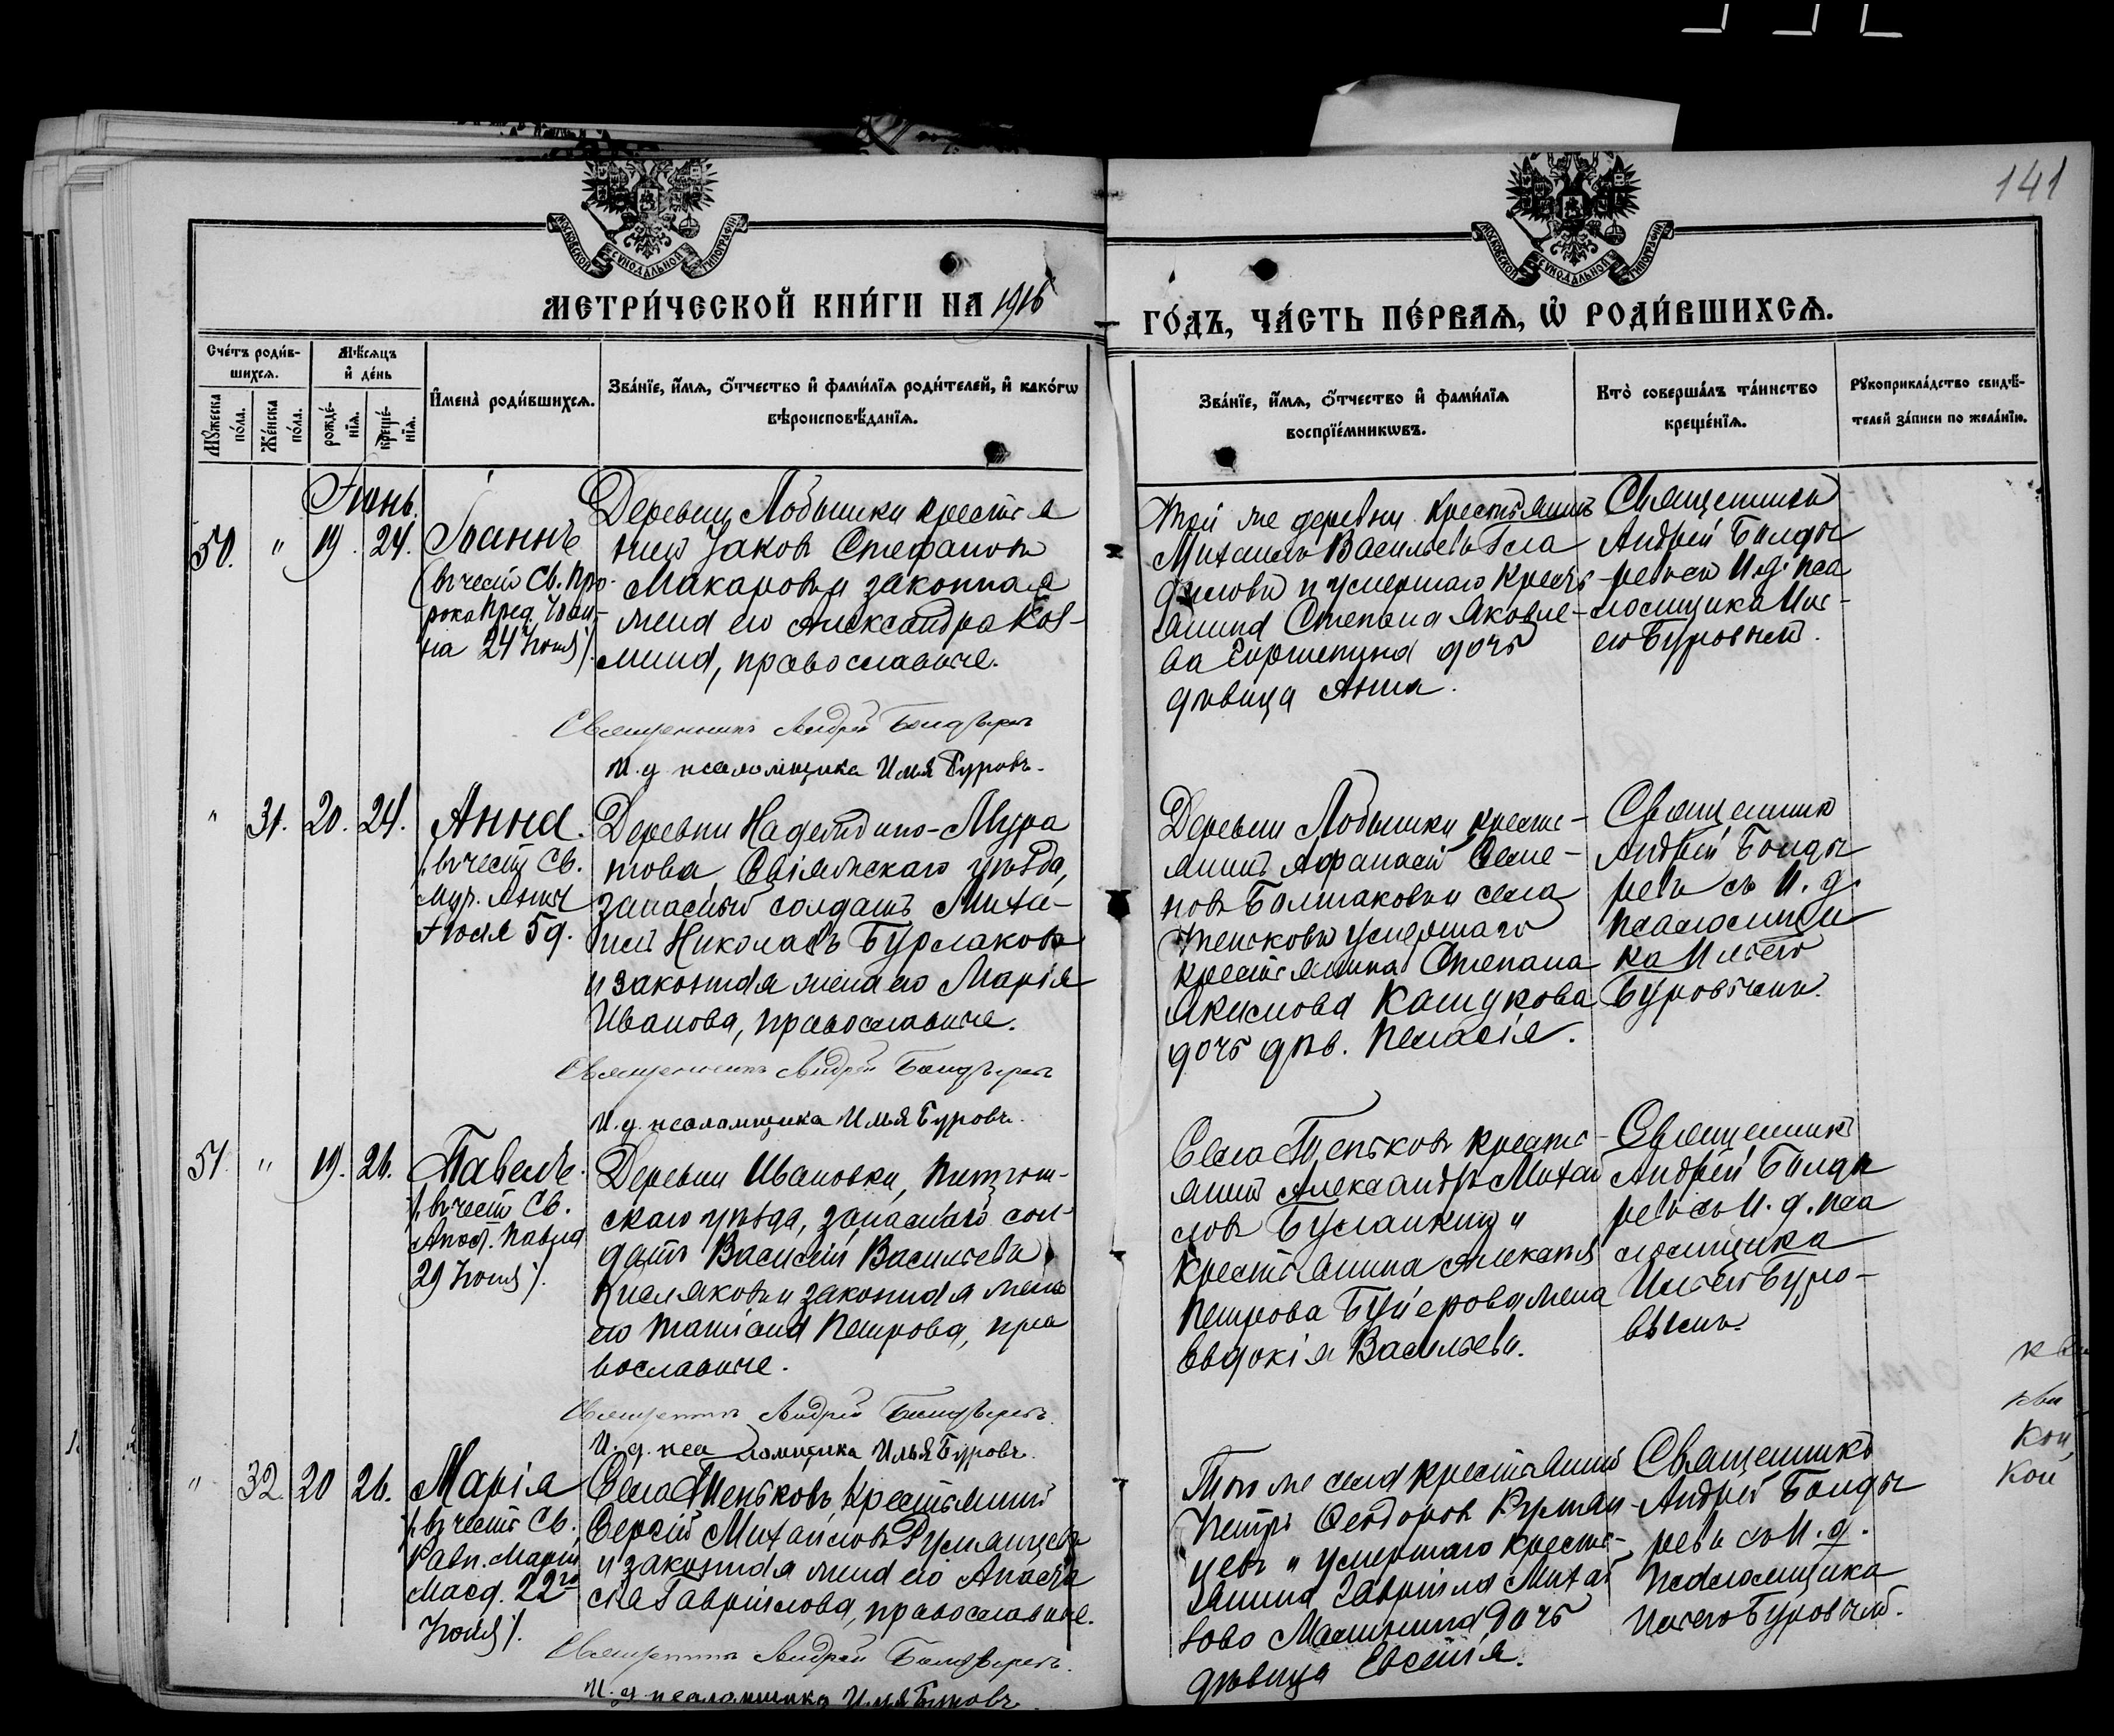 141
МОСКОВСКОЙ СѴНОДАЛЬНОЙ ТИПОГРАФІИ
МОСКОВСКОЙ СѴНОДАЛЬНОЙ ТИПОГРАФІИ
МЕТРИ́ЧЕСКОЙ КНИ́ГИ НА 1916
ГО́ДЪ, ЧА́СТЬ ПЕ́РВАѦ, Ѡ҆ РОДИ́ВШИХСѦ.
Сче́тъ роди́в-
шихсѧ.
Мꙋжеска по́ла.
Же́нска по́ла.
Мѣ́сѧцъ
и҆ де́нь
рожде́-
нїѧ.
креще́-
нїѧ.
И҆мена̀ роди́вшихсѧ.
Зва́нїе, и҆́мѧ, ѻ҆́тчество и҆ фами́лїѧ роди́телей, и҆ како́гѡ
вѣроисповѣ́данїѧ.
Зва́нїе, и҆́мѧ, ѻ҆́тчество и҆ фами́лїѧ
воспрїе́мникѡвъ.
Кто̀ соверша́лъ та́инство
креще́нїѧ.
Рꙋкоприкла́дство свидѣ́-
телей за́писи по жела́нїю.
Іюнь.
50. " 19. 24. Іоаннъ
(въ честь Св. Про-
рока Пред. Іоан-
на 24 Іюня).
Деревни Лобышки крестья
нин Іаковъ Стефановъ
Макаровъ и законная
жена его Александра Коз-
мина, православные.
Священникъ Андрей Болдыревъ
И. д. псаломщика Илья Буровъ.
Той же деревни крестьянинъ
Михаилъ Васильевъ
и умершаго кресть
янина Степана Яковле-
ва дочь
дѣвица Анна.
Священникъ
Андрей Болды
ревъ съ И. д. пса
ломщика Иль-
ею Буровым.
" 31. 20. 24. Анна.
(въ честь Св.
Мур. Анны
Іюля 5 д.
Деревни Надеждино-Мура
това, Свіяжскаго уѣзда,
запасный солдатъ Миха-
ил Николаевъ Бурлаковъ
и законная жена его Марія
Иванова, православные.
Священникъ Андрей Болдыревъ
И. д. псаломщика Илья Буровъ.
Деревни Лобышки кресть-
янинъ Афанасій Семе-
новъ и села
Теньковъ умершаго
крестьянина Степана
Якимова Кашукова
дочь дѣв. Пелагія.
Священник
Андрей Болды
ревъ съ И. д.
псаломщи
ка Ильею
Буровымъ.
51. " 19. 26. Павелъ.
(въ честь Св.
Апост. Павла
29 Іюня).
Деревни Ивановки,
скаго уѣзда, запаснаго сол-
датъ Василій Васильевъ
Кисляковъ и законная жена
его Татіана Петрова, пра
вославные.
Священникъ Андрей Болдыревъ.
И. д. псаломщика Илья Буровъ.
Села Теньковъ кресть-
янин Александръ Михаи
ловъ и
крестьянина Алексея
Петрова жена
Евдокія Васильева.
Священникъ
Андрей Болды
ревъ съ И. д. пса
ломщика
Ильею Буро-
вымъ.
" 32. 20 26. Марія
(въ честь Св.
Равн. Маріи
Магд. 22го
Іюля).
Села Теньковъ, крестьянин
Сергій Михайловъ Румянцевъ
и законная жена его Анаста
сія Гавриилова, православные.
Священникъ Андрей Болдыревъ.
И. д. псаломщика Илья Буровъ.
Того же села крестьянин
Петръ Ѳеодоров Румян
цевъ и умершаго кресть-
янина Гавриила Михай
лова дочь
дѣвица Евгенія.
Священникъ
Андрей Болды
ревъ съ И. д.
псаломщика
Ильею Буровым.